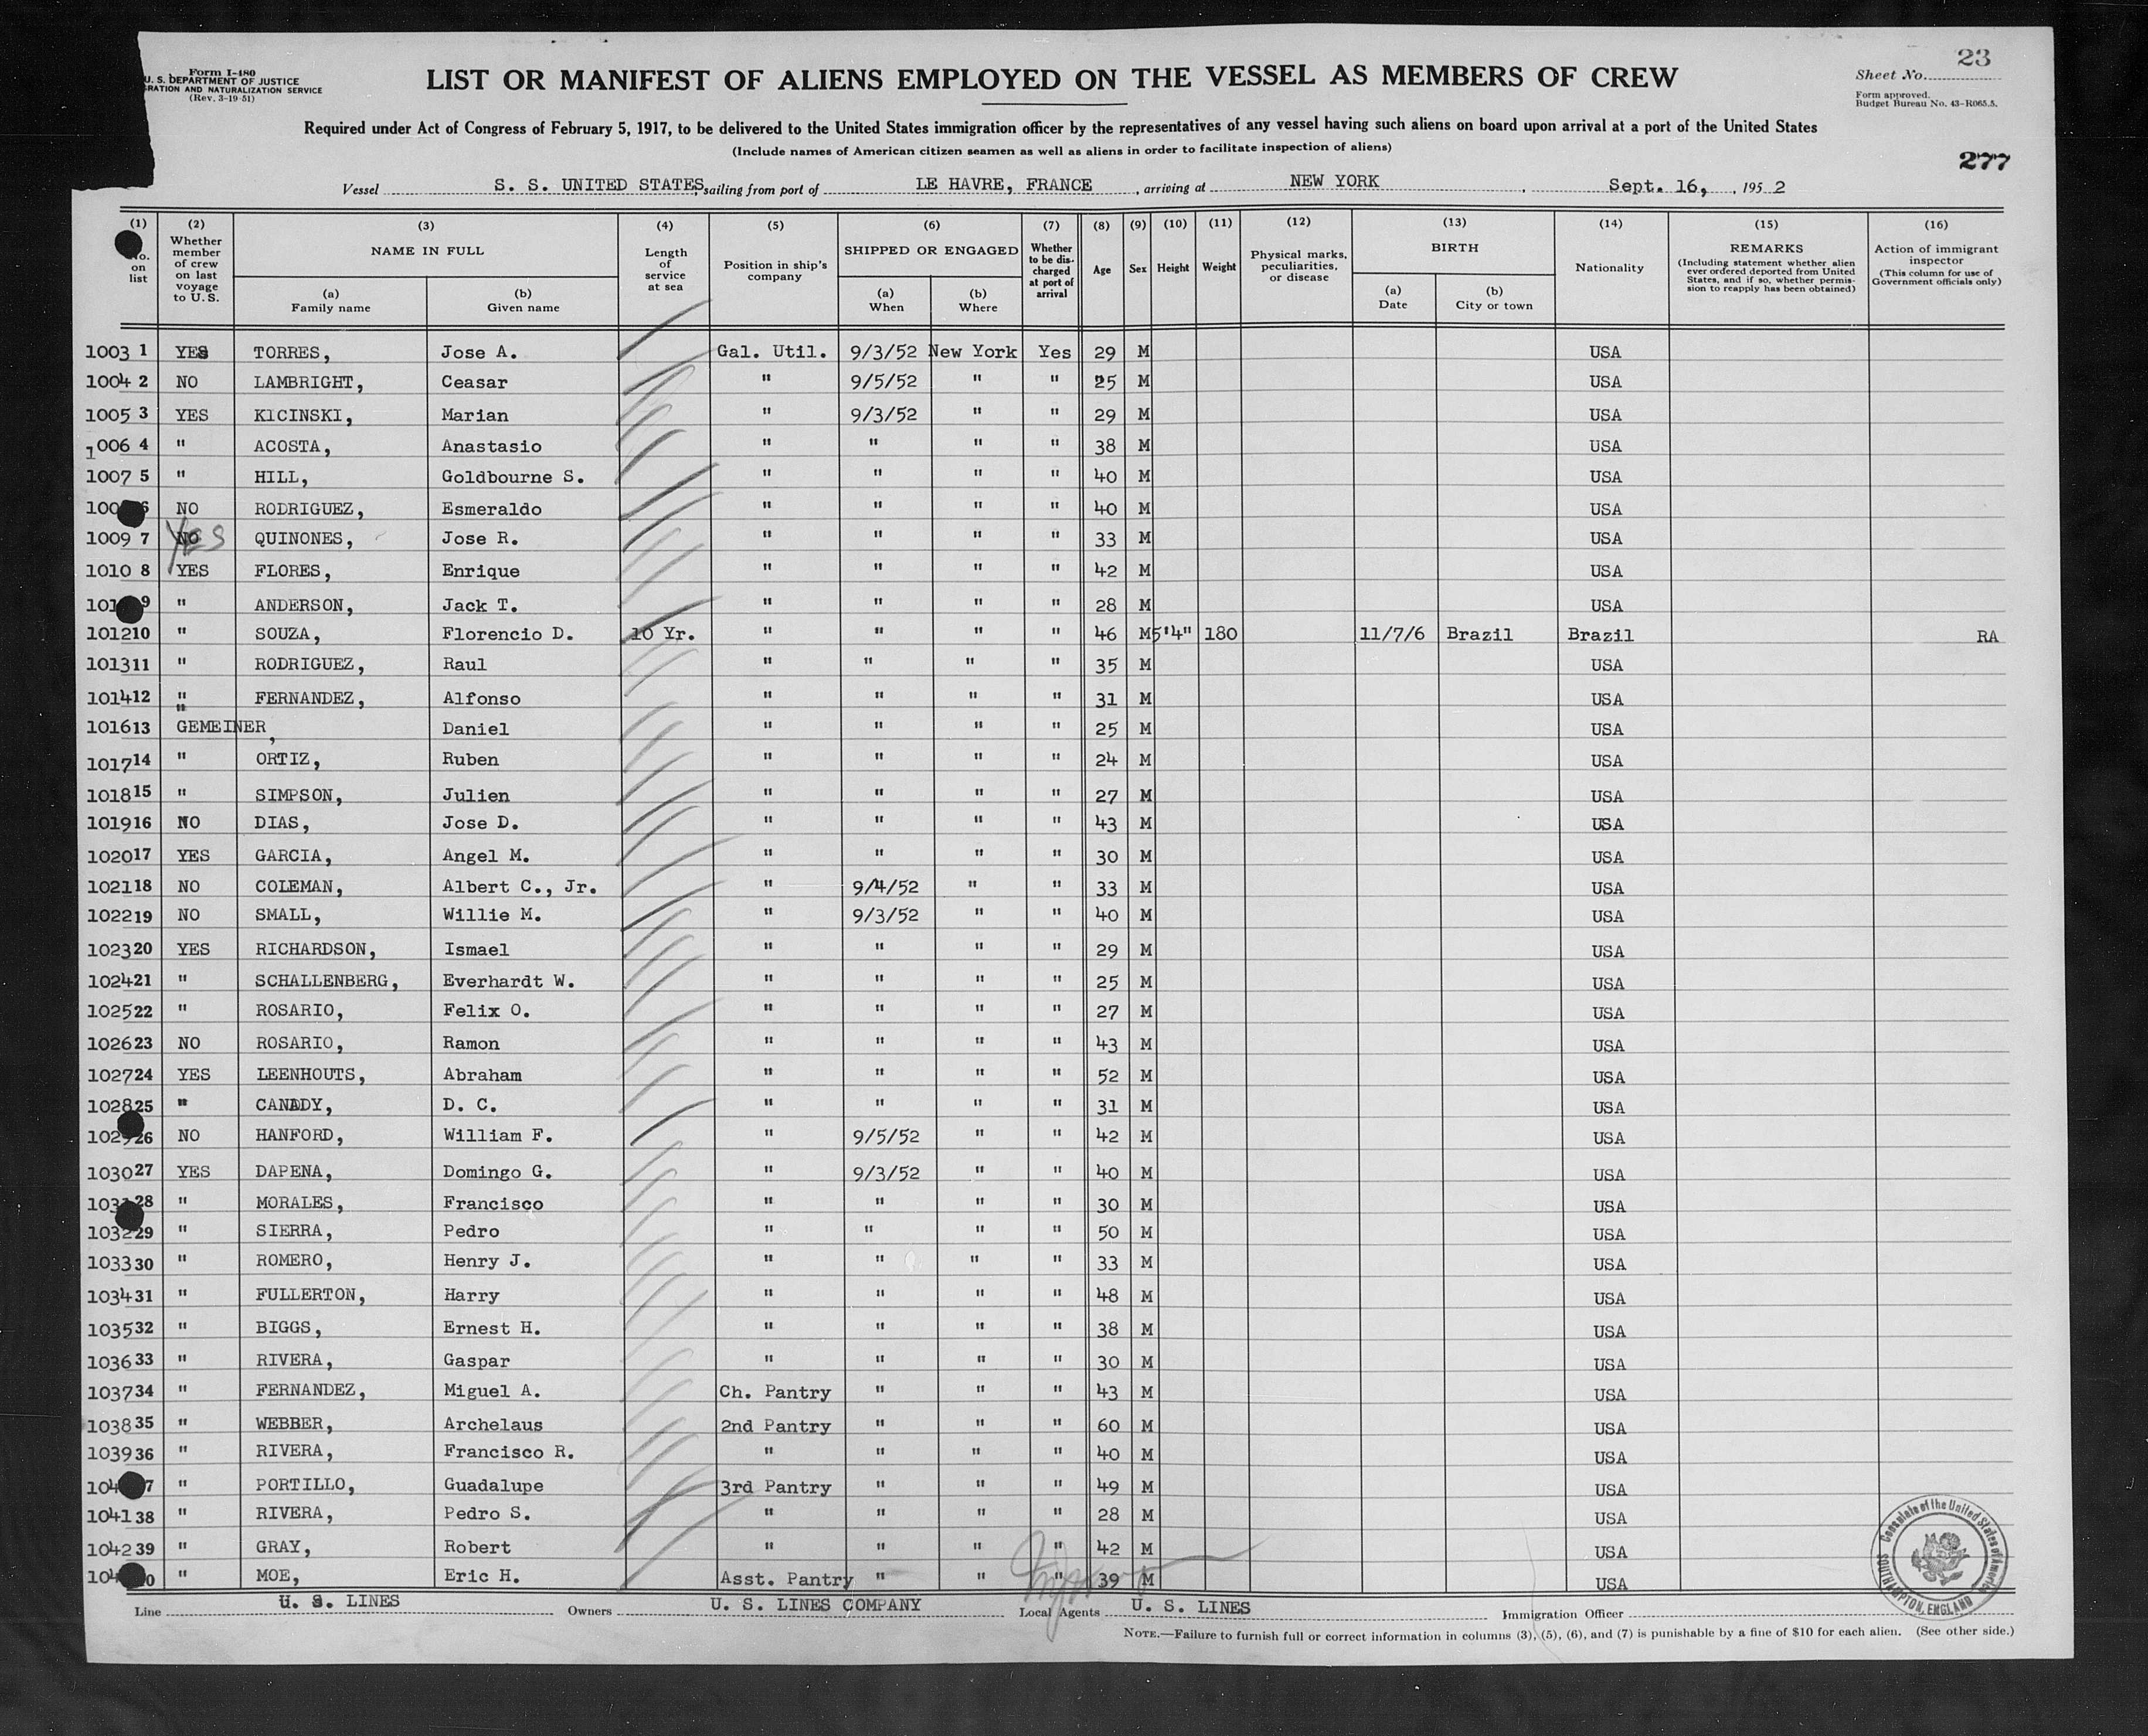 23
Form I-480
U. S. DEPARTMENT OF JUSTICE
RATION AND NATURALIZATION SERVICE
(Rev. 3-19-51)
LIST OR MANIFEST OF ALIENS EMPLOYED ON THE VESSEL AS MEMBERS OF CREW
Sheet No.
Form approved.
Budget Bureau No. 43-R065.5.
Required under Act of Congress of February 5, 1917, to be delivered to the United States immigration officer by the representatives of any vessel having such aliens on board upon arrival at a port of the United States
(Include names of American citizen seamen as well as aliens in order to facilitate inspection of aliens)
277
Vessel S. S. UNITED STATES, sailing from port of LE HAVRE, FRANCE, arriving at NEW YORK, Sept. 16, 1952
(1) (2) (3) (4) (5) (6) (7) (8) (9) (10) (11) (12) (13) (14) (15) (16)
No. on list
Whether member of crew on last voyage to U.S.
NAME IN FULL
(a) Family name
(b) Given name
Length of service at sea
Position in ship's company
SHIPPED OR ENGAGED
(a) When
(b) Where
Whether to be discharged at port of arrival
Age
Sex
Height
Weight
Physical marks, peculiarities, or disease
BIRTH
(a) Date
(b) City or town
Nationality
REMARKS
(Including statement whether alien ever ordered deported from United States, and if so, whether permission to reapply has been obtained)
Action of immigrant inspector
(This column for use of Government officials only)
1003 1 YES TORRES, Jose A. Gal. Util. 9/3/52 New York Yes 29 M USA
1004 2 NO LAMBRIGHT, Ceasar " 9/5/52 " " 25 M USA
1005 3 YES KICINSKI, Marian " 9/3/52 " " 29 M USA
1006 4 " ACOSTA, Anastasio " " " " 38 M USA
1007 5 " HILL, Goldbourne S. " " " " 40 M USA
100 6 NO RODRIGUEZ, Esmeraldo " " " " 40 M USA
1009 7 NO YES QUINONES, Jose R. " " " " 33 M USA
1010 8 YES FLORES, Enrique " " " " 42 M USA
101 9 " ANDERSON, Jack T. " " " " 28 M USA
1012 10 " SOUZA, Florencio D. 10 Yr. " " " " 46 M 5'4" 180 11/7/6 Brazil Brazil RA
1013 11 " RODRIGUEZ, Raul " " " " 35 M USA
1014 12 " FERNANDEZ, Alfonso " " " " 31 M USA
1016 13 " GEMEINER, Daniel " " " " 25 M USA
1017 14 " ORTIZ, Ruben " " " " 24 M USA
1018 15 " SIMPSON, Julien " " " " 27 M USA
1019 16 NO DIAS, Jose D. " " " " 43 M USA
1020 17 YES GARCIA, Angel M. " " " " 30 M USA
1021 18 NO COLEMAN, Albert C., Jr. " 9/4/52 " " 33 M USA
1022 19 NO SMALL, Willie M. " 9/3/52 " " 40 M USA
1023 20 YES RICHARDSON, Ismael " " " " 29 M USA
1024 21 " SCHALLENBERG, Everhardt W. " " " " 25 M USA
1025 22 " ROSARIO, Felix O. " " " " 27 M USA
1026 23 NO ROSARIO, Ramon " " " " 43 M USA
1027 24 YES LEENHOUTS, Abraham " " " " 52 M USA
1028 25 " CANADY, D. C. " " " " 31 M USA
1029 26 NO HANFORD, William F. " 9/5/52 " " 42 M USA
1030 27 YES DAPENA, Domingo G. " 9/3/52 " " 40 M USA
1031 28 " MORALES, Francisco " " " " 30 M USA
1032 29 " SIERRA, Pedro " " " " 50 M USA
1033 30 " ROMERO, Henry J. " " " " 33 M USA
1034 31 " FULLERTON, Harry " " " " 48 M USA
1035 32 " BIGGS, Ernest H. " " " " 38 M USA
1036 33 " RIVERA, Gaspar " " " " 30 M USA
1037 34 " FERNANDEZ, Miguel A. Ch. Pantry " " " 43 M USA
1038 35 " WEBBER, Archelaus 2nd Pantry " " " 60 M USA
1039 36 " RIVERA, Francisco R. " " " " 40 M USA
104 7 " PORTILLO, Guadalupe 3rd Pantry " " " 49 M USA
1041 38 " RIVERA, Pedro S. " " " " 28 M USA
1042 39 " GRAY, Robert " " " " 42 M USA
104 0 " MOE, Eric H. Asst. Pantry " " " 39 M USA
Consulate of the United States of America
SOUTHAMPTON, ENGLAND
Line U. S. LINES Owners U. S. LINES COMPANY Local Agents U. S. LINES Immigration Officer
NOTE.—Failure to furnish full or correct information in columns (3), (5), (6), and (7) is punishable by a fine of $10 for each alien. (See other side.)